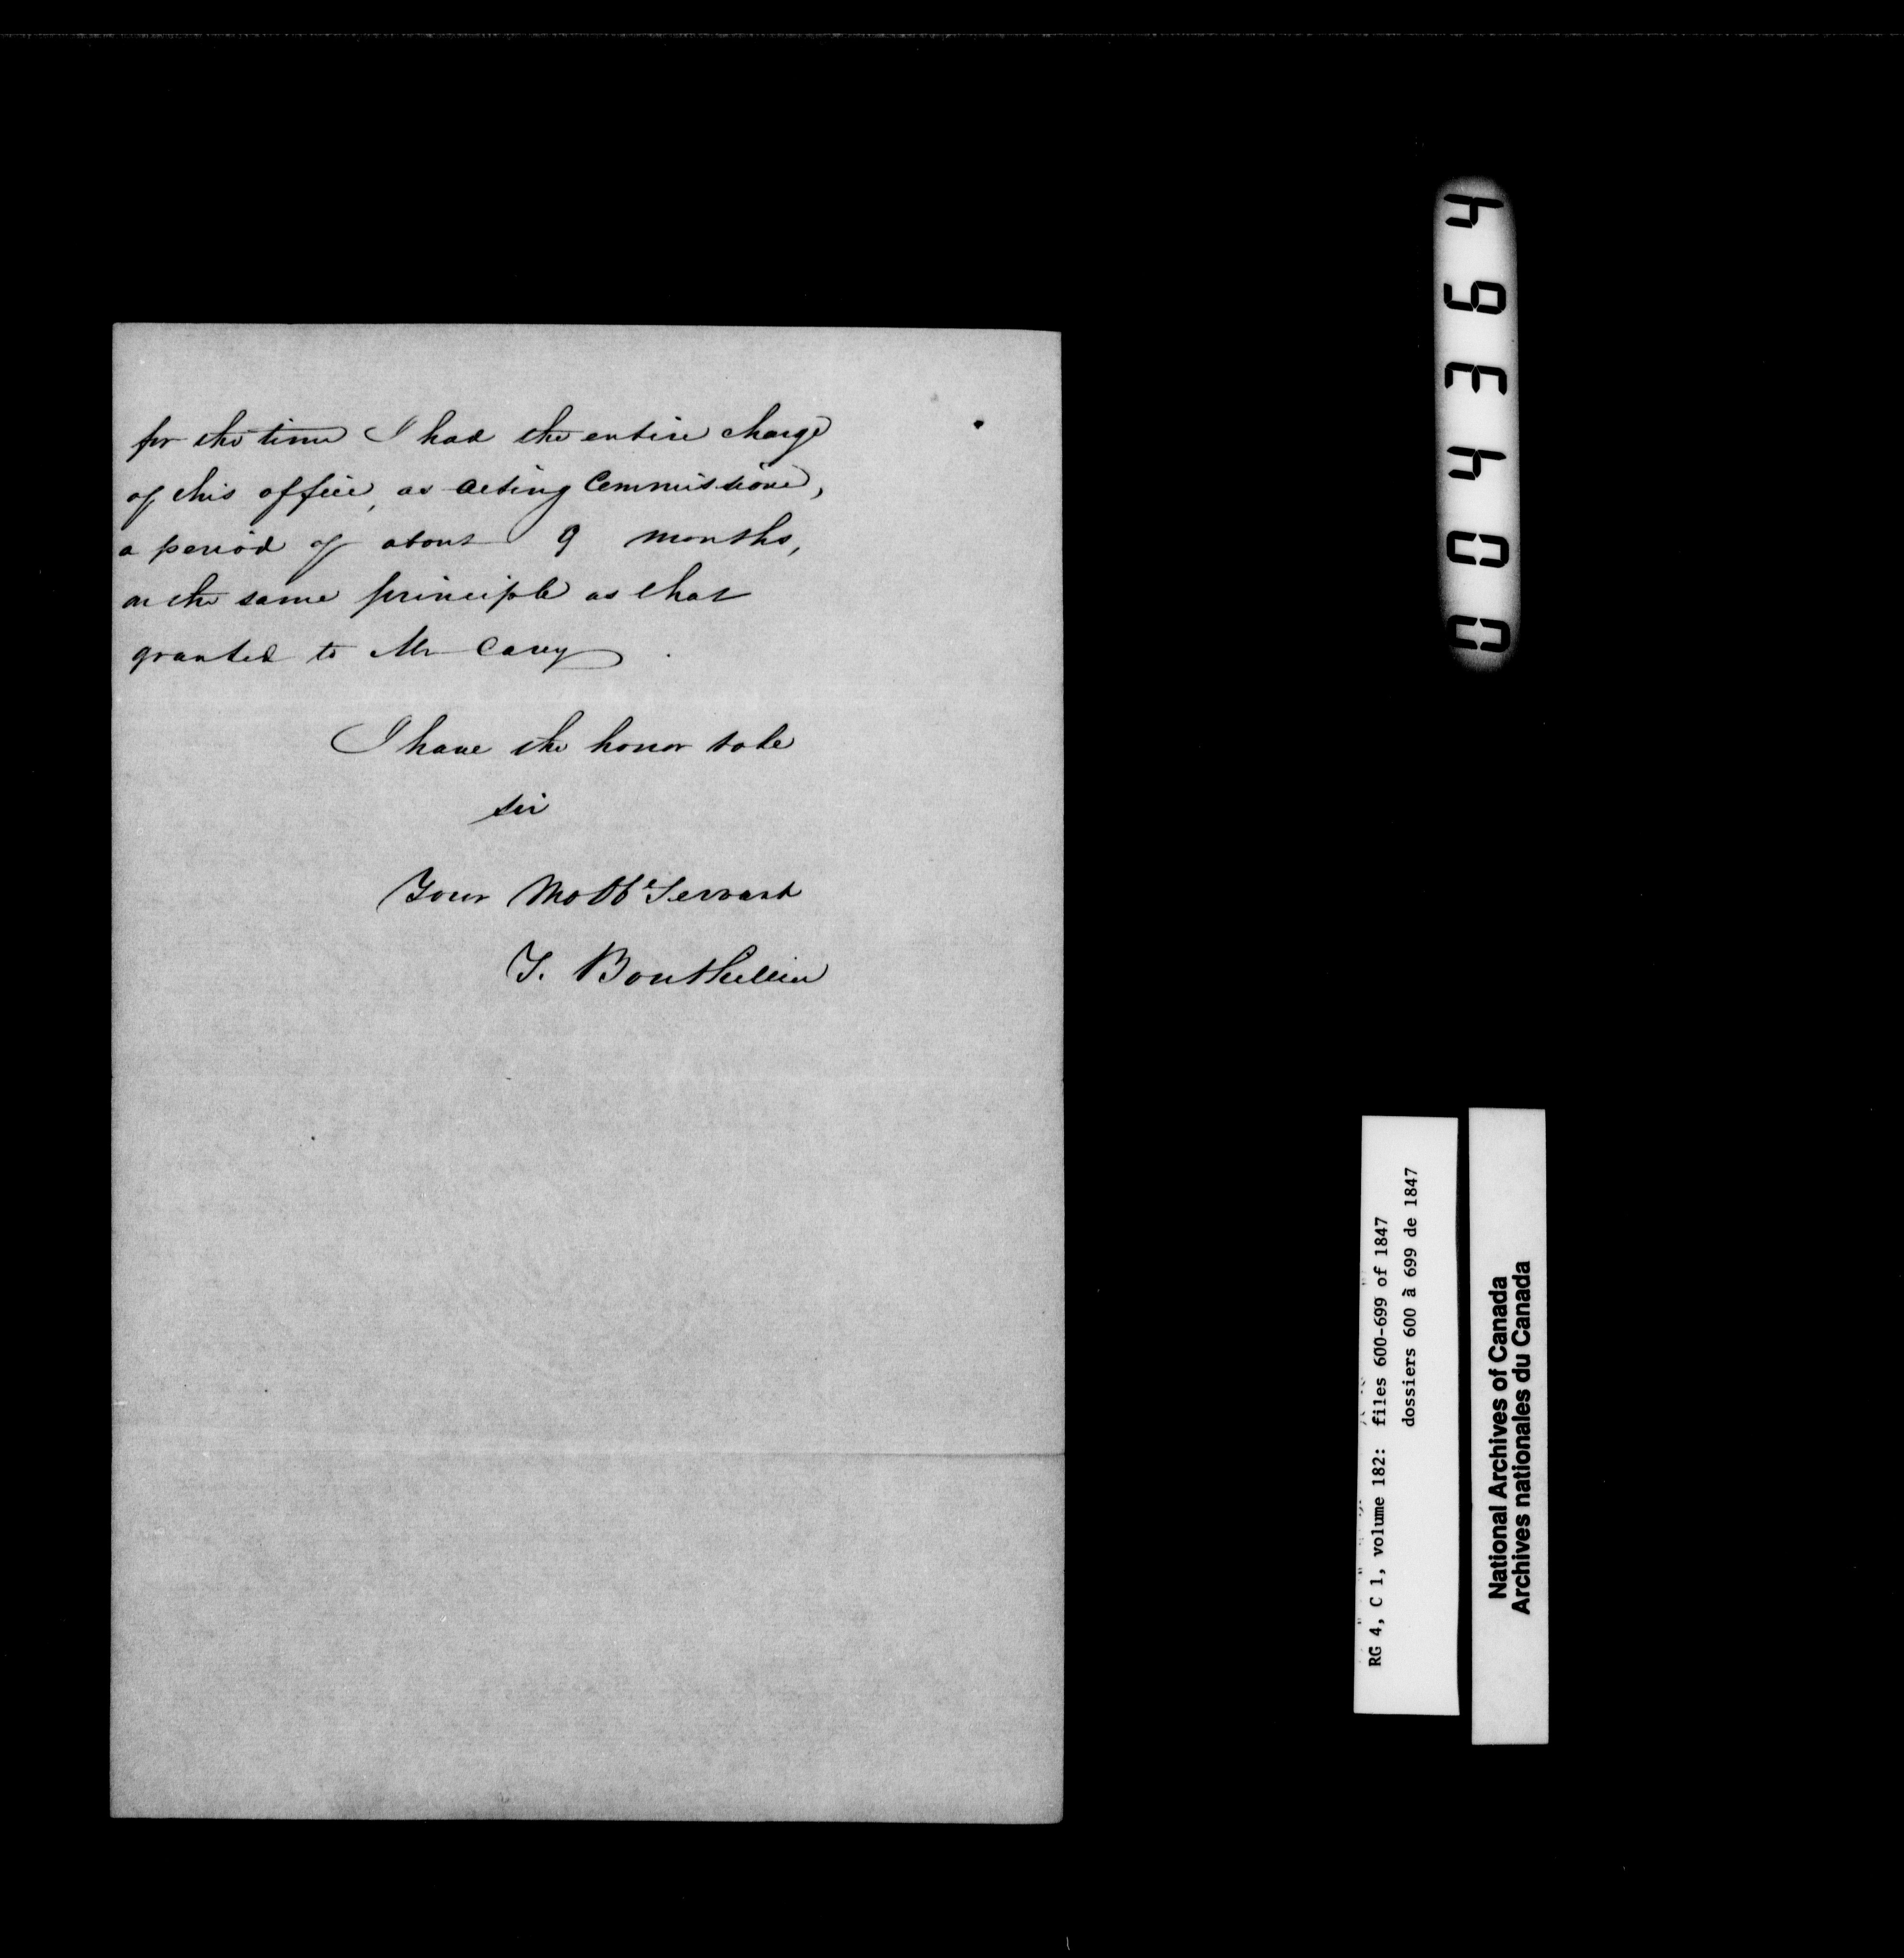 for the time I had the entire charge
of this office, as acting Commissioner,
a period of about 9 months,
on the same principle as that
granted to Mr Carey.
I have the honor to be
Sir
Your Mo Obt Servant
T. Bouthillier
004364
RG 4, C 1, volume 182: files 600-699 of 1847
dossiers 600 à 699 de 1847
National Archives of Canada
Archives nationales du Canada